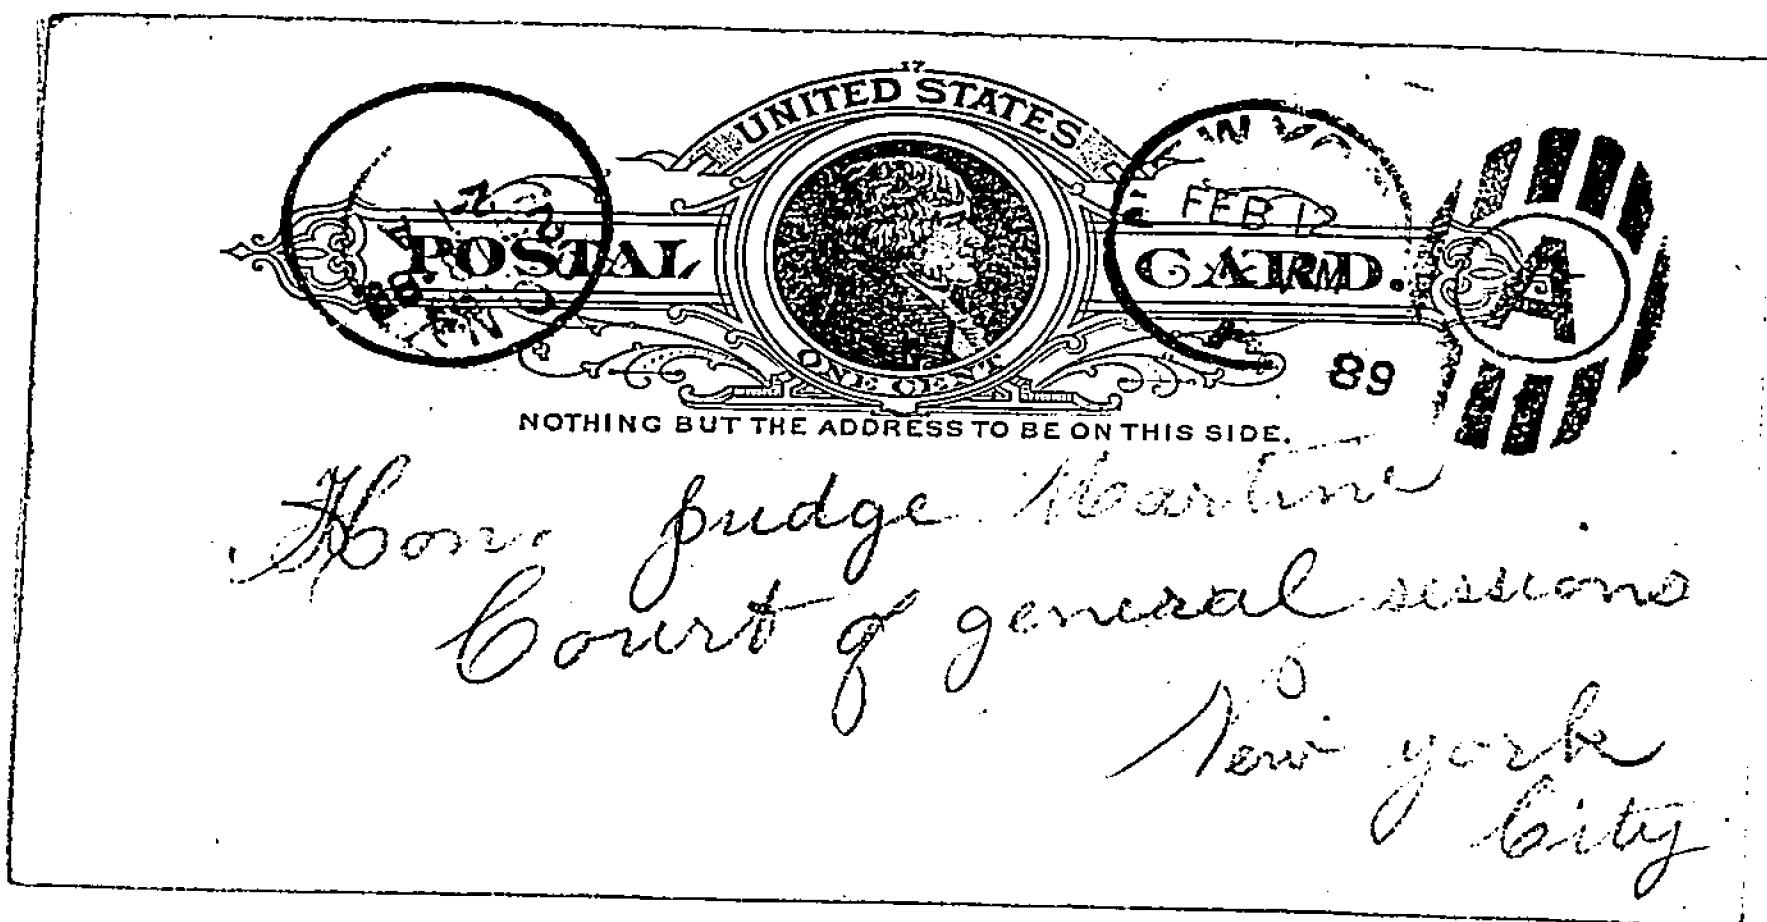 17
UNITED STATES
POSTAL CARD.
ONE CENT
FEB 12
89
A
NOTHING BUT THE ADDRESS TO BE ON THIS SIDE.
Hon. judge Martine
Court of general sessions
New york
City